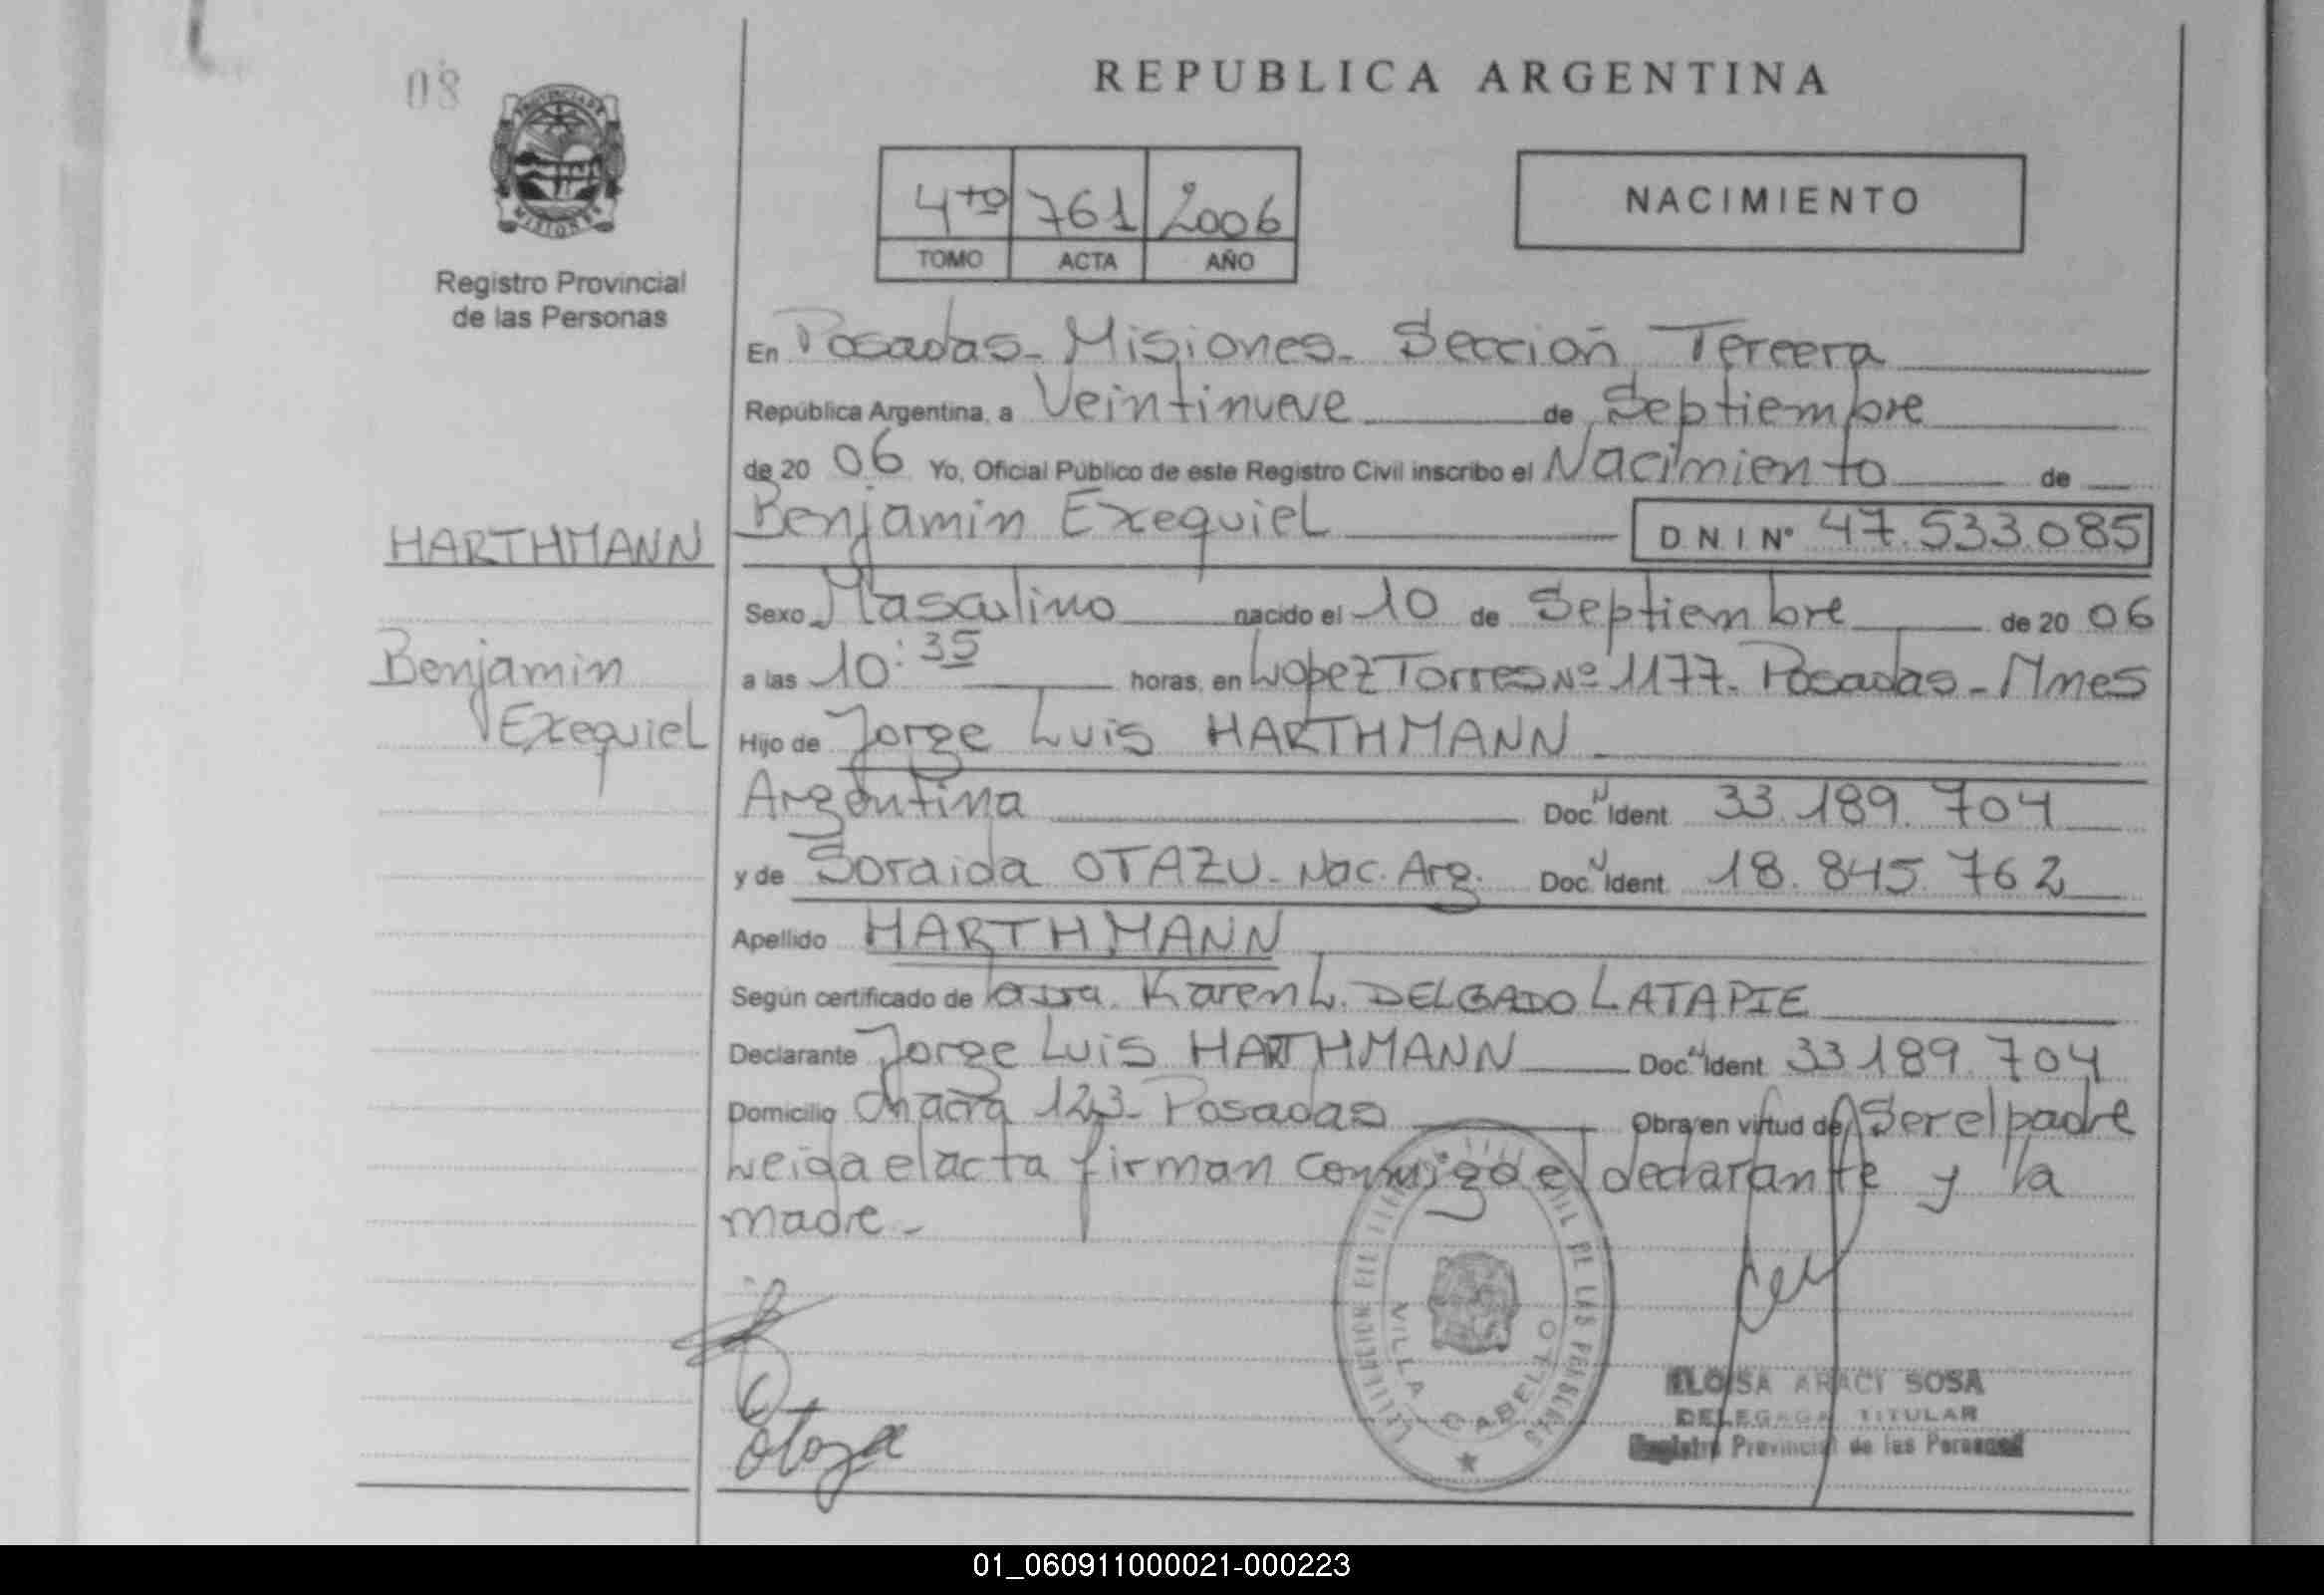 08
REPUBLICA ARGENTINA
PROVINCIA DE
MISIONES
Registro Provincial
de las Personas
4to 761 2006
TOMO ACTA AÑO
NACIMIENTO
En Posadas - Misiones - Sección Tercera
República Argentina, a Veintinueve de Septiembre
de 20 06 Yo, Oficial Público de este Registro Civil inscribo el Nacimiento de
HARTHMANN
Benjamin Exequiel
Benjamin Exequiel D N I Nº 47.533.085
Sexo Masculino nacido el 10 de Septiembre de 20 06
a las 10:35 horas, en Lopez Torres Nº 1177 - Posadas - Mnes
Hijo de Jorge Luis HARTHMANN
Argentina Doc. Ident 33.189.704
y de Soraida OTAZU - Nac. Arg. Doc. Ident 18.845.762
Apellido HARTHMANN
Según certificado de Karen L. DELGADO LATAPIE
Declarante Jorge Luis HARTHMANN Doc. Ident 33.189.704
Domicilio Chacra 123 - Posadas Obra en virtud de Ser el padre
Leida el acta firman conmigo el declarante y la
madre -
DE LAS PERSONAS
VILLA CABELLO
Otazu
ELOISA ARACI SOSA
DELEGADA TITULAR
Registro Provincial de las Personas
01_060911000021-000223